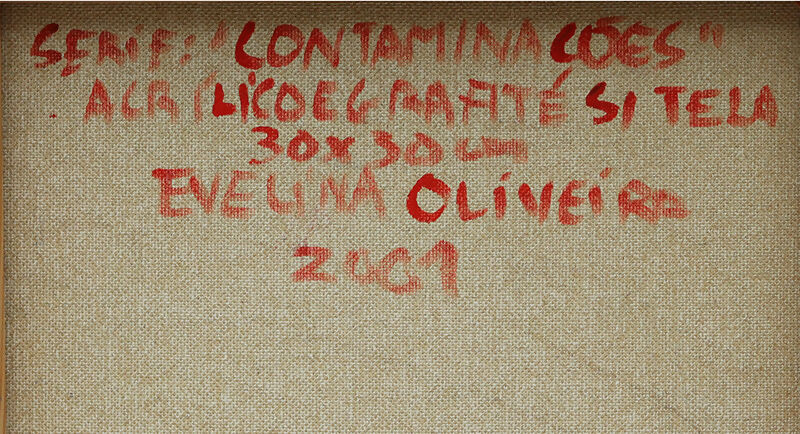 SÉRIE: "CONTAMINAÇÕES"
ACRÍLICO E GRAFITÉ S/ TELA
30x30 cm
EVELINA OLIVEIRA
2001